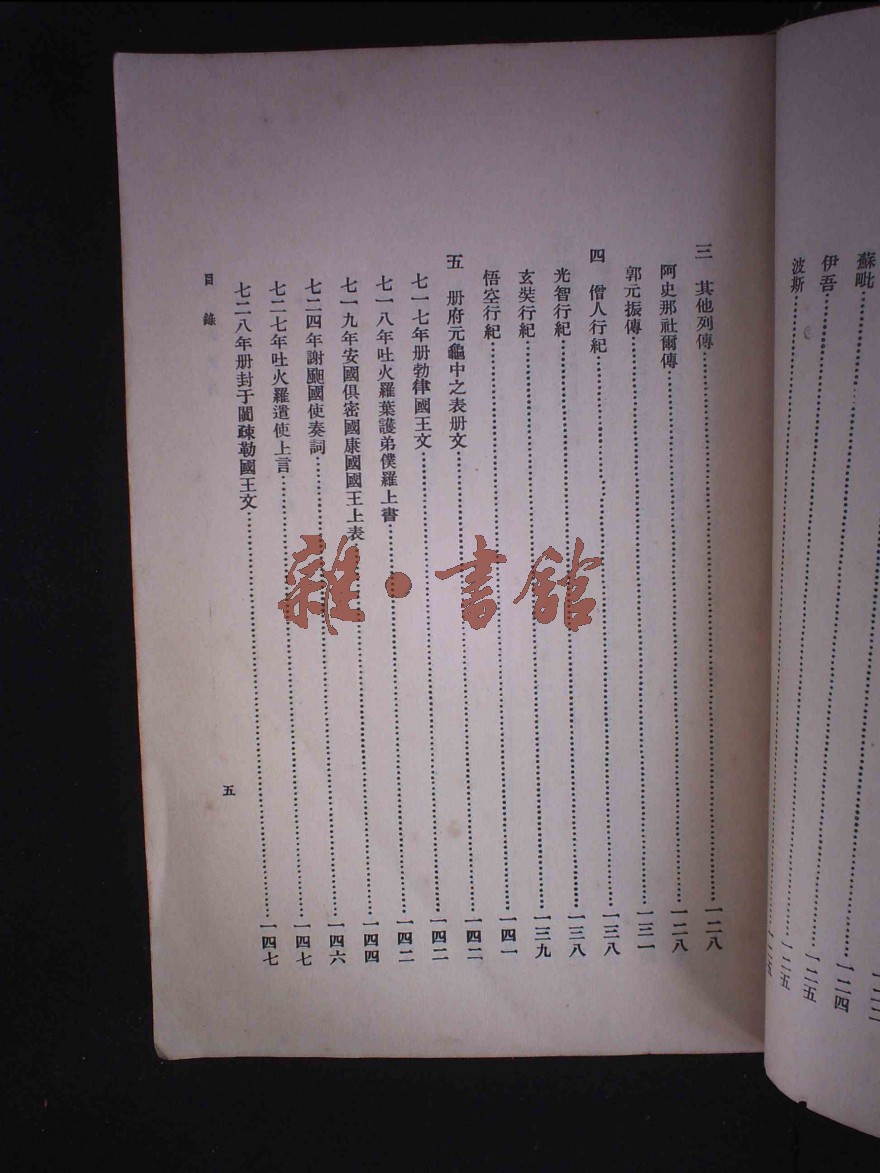 蘇毗……一二四
伊吾……一二五
波斯……一二五
三 其他列傳……一二八
阿史那社爾傳……一二八
郭元振傳……一三一
四 僧人行紀……一三八
光智行紀……一三八
玄奘行紀……一三九
悟空行紀……一四一
五 册府元龜中之表册文……一四二
七一七年册勃律國王文……一四二
七一八年吐火羅葉護弟僕羅上書……一四二
七一九年安國俱密國康國國王上表……一四四
七二四年謝䫻國使奏詞……一四六
七二七年吐火羅遣使上言……一四七
七二八年册封于闐疎勒國王文……一四七
目錄
五
雜·書館